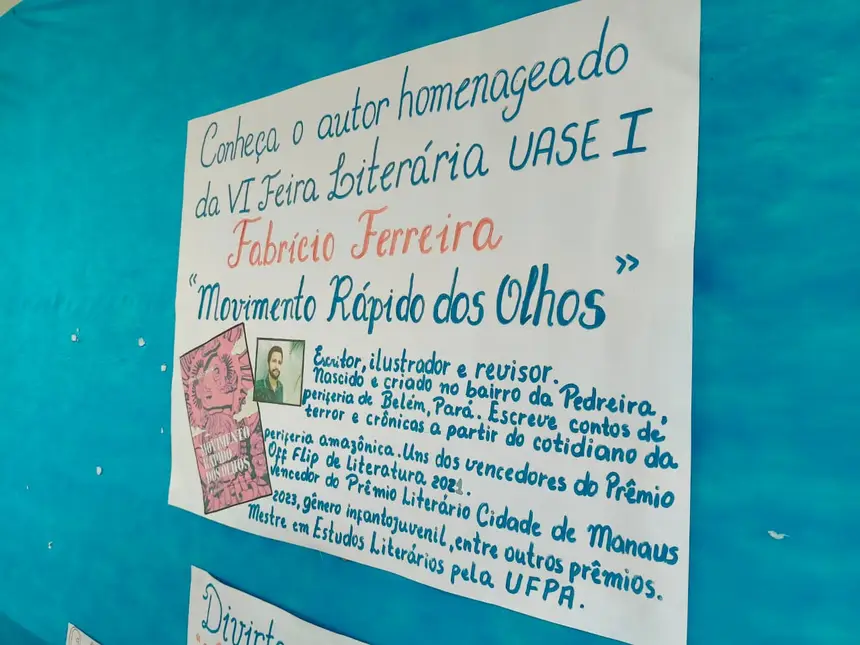 Conheça o autor homenageado
da VI Feira Literária UASE I
Fabrício Ferreira
"Movimento Rápido dos Olhos"
Escritor, ilustrador e revisor.
Nascido e criado no bairro da Pedreira,
periferia de Belém, Pará. Escreve contos de
terror e crônicas a partir do cotidiano da
periferia amazônica. Uns dos vencedores do Prêmio
Off Flip de Literatura 2021.
Vencedor do Prêmio Literário Cidade de Manaus
2023, gênero infantojuvenil, entre outros prêmios.
Mestre em Estudos Literários pela UFPA.
MOVIMENTO
RÁPIDO
DOS OLHOS